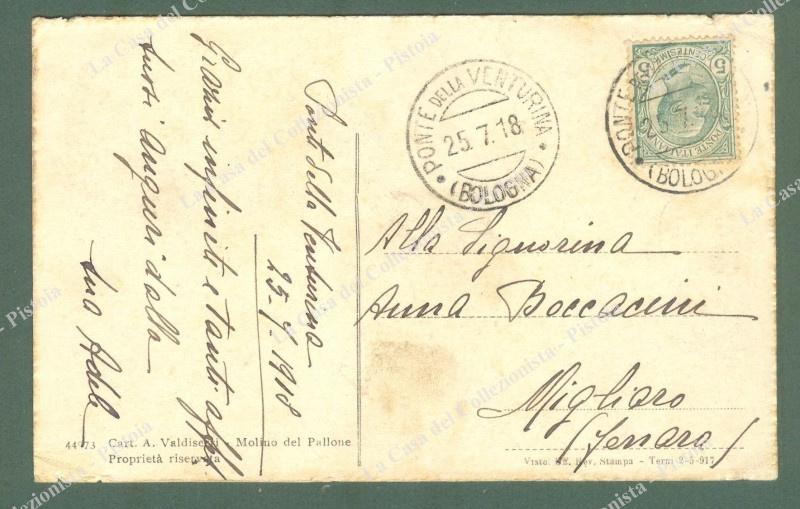 Ponte della Venturina
25-7-1918
Grazie infinite e tanti aff.
tuoi auguri dalla
tua Adele
PONTE DELLA VENTURINA
25.7.18
(BOLOGNA)
POSTE ITALIANE
CENTESIMI
5
5
PONTE
(BOLOG
Alla Signorina
Anna Boccacini
Migliaro
(Ferrara)
Cart. A. Valdiserri - Molino del Pallone
Proprietà riservata
Visto. Rev. Stampa - Terni 2-5-917
La Casa del Collezionista - Pistoia